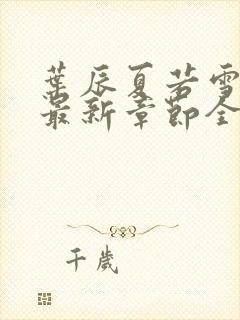 葉辰夏若雪
最新章節全
千歲